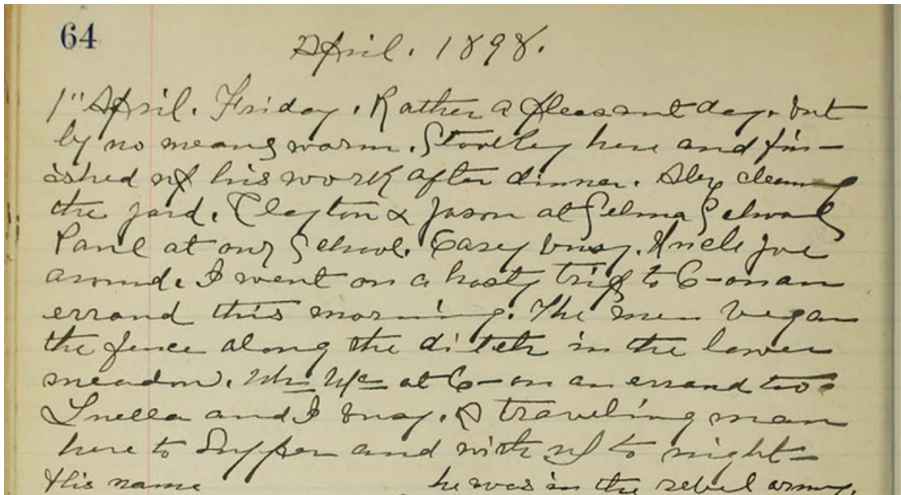 64
April. 1898.
1" April. Friday. Rather a pleasant day. but
by no means warm. Stoutley here and fin-
ished up his work after dinner. Alex cleaning
the yard. Clayton & Jason at Selma School
Paul at our School. Casey busy. Uncle Joe
around. I went on a hasty trip to C- on an
errand this morning. The men began
the fence along the ditch in the lower
meadow. Mr. Mc at C- on an errand too.
Luella and I busy. A traveling man
here to Supper and with us to night-
His name he was in the rebel army.